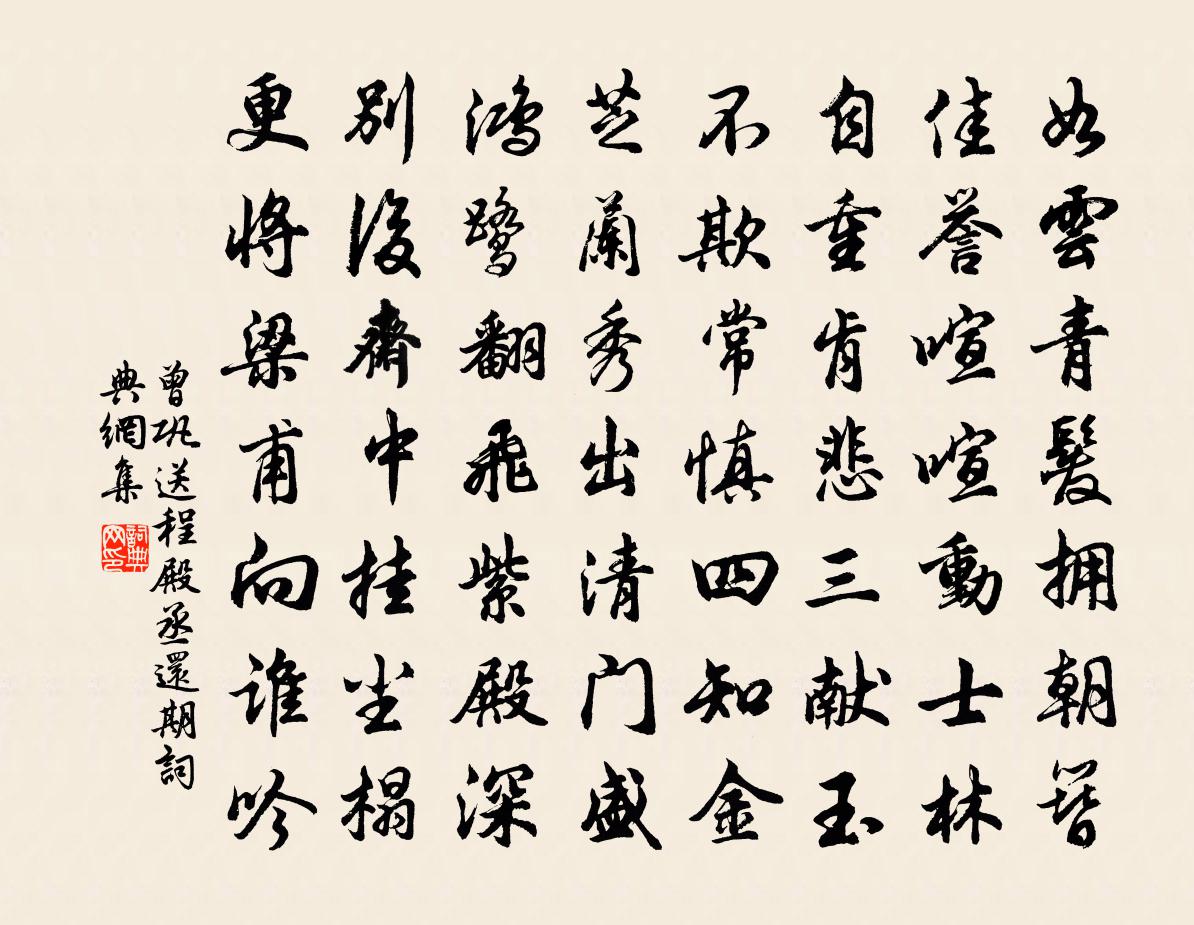 如雲青髮拥朝簪
佳誉喧喧動士林
自重肯悲三献玉
不欺常慎四知金
芝蘭秀出清门盛
鴻鹭翻飛紫殿深
別後齋中挂尘榻
更將梁甫向谁吟
曾巩送程殿丞還期詞
典網集
詞典网印